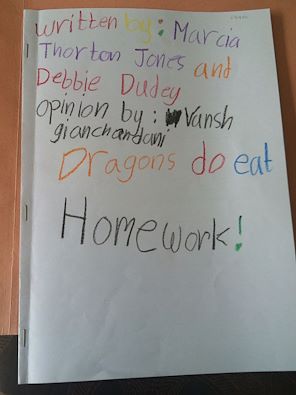 written by: Marcia
Thorton Jones and
Debbie Dudey
opinion by: Vansh
gianchandani
Dragons do eat
Homework!